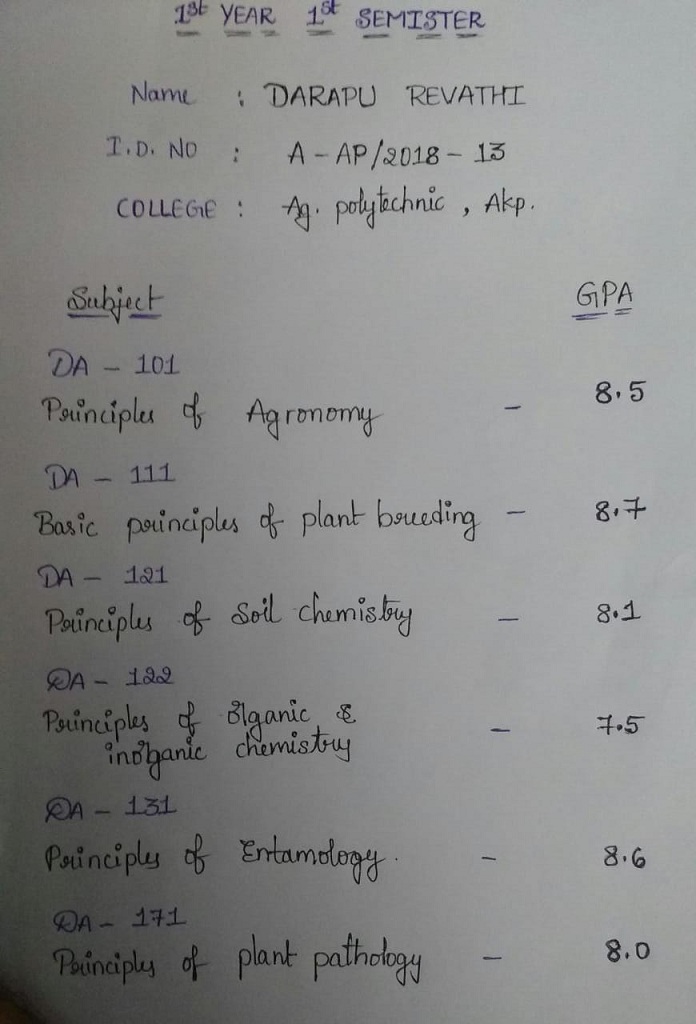 1st YEAR 1st SEMISTER
Name : DARAPU REVATHI
I.D. NO : A - AP/2018 - 13
COLLEGE : Ag. polytechnic , Akp.
Subject GPA
DA - 101
Principles of Agronomy - 8.5
DA - 111
Basic principles of plant breeding - 8.7
DA - 121
Principles of Soil chemistry - 8.1
DA - 122
Principles of organic &
inorganic chemistry - 7.5
DA - 131
Principles of Entamology. - 8.6
DA - 171
Principles of plant pathology - 8.0